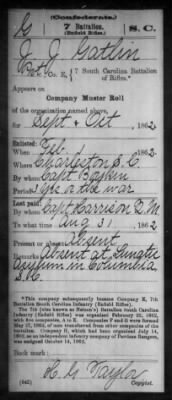 (Confederate.)
G 7 Battalion, S. C.
(Enfield Rifles.)
J J Gatlin
Co. E, 7 South Carolina Battalion
of Rifles.*
Appears on
Company Muster Roll
of the organization named above,
for Sept & Oct, 1862
Enlisted:
When Feb, 1862
Where Charleston S. C.
By whom Capt
Period 3 yrs or the war
Last paid:
By whom Capt Harrison Q. M
To what time Aug 31, 1862
Present or absent Absent
Remarks: Absent at Lunatic
Asylum in Columbia
S. C.
*This company subsequently became Company E, 7th
Battalion South Carolina Infantry (Enfield Rifles).
The 7th (also known as Nelson's) Battalion South Carolina
Infantry (Enfield Rifles) was organized February 22, 1862,
with five companies, A to E. Companies F and G were formed
May 17, 1862, of men transferred from other companies of the
battalion. Company H, which had been organized July 14,
1862, as an independent company of Partisan Rangers,
was assigned October 14, 1862.
Book mark:
R. G. Taylor
(642) Copyist.